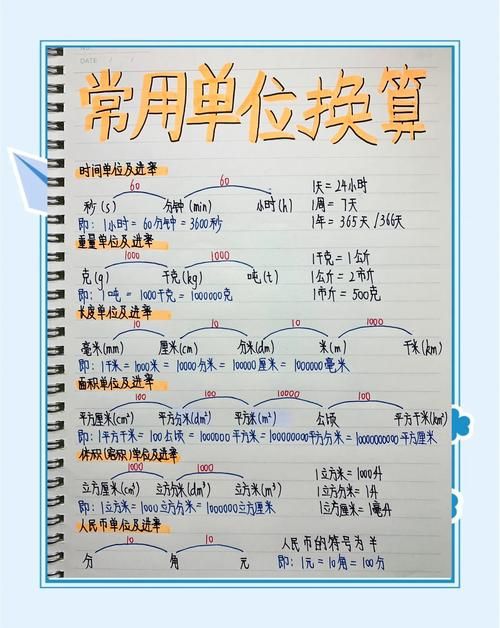 DATE
常用单位换算
时间单位及进率
60 60
秒(s) 分钟(min) 小时(h)
即:1小时=60分钟=3600秒
1天=24小时
1周=7天
1年=365天/366天
重量单位及进率
1000 1000
克(g) 千克(kg) 吨(t)
即:1吨=1000千克=1000000克
1千克=1公斤
1公斤=2市斤
1市斤=500克
长度单位及进率
10 10 10 1000
毫米(mm) 厘米(cm) 分米(dm) 米(m) 千米(km)
即:1千米=1000米=10000分米=100000厘米=1000000毫米
面积单位及进率
100 100 10000 100
平方厘米(cm²) 平方分米(dm²) 平方米(m²) 公顷 平方千米(km²)
即:1平方千米=100公顷=1000000平方米=100000000平方分米=10000000000平方厘米
体积(容积)单位及进率
1000 1000
立方厘米(cm³) 立方分米(dm³) 立方米(m³)
即:1立方米=1000立方分米=1000000立方厘米
1立方米=1000升
1立方分米=1升
1立方厘米=1毫升
人民币单位及进率
10 10
分 角 元
人民币的符号为¥
即:1元=10角=100分